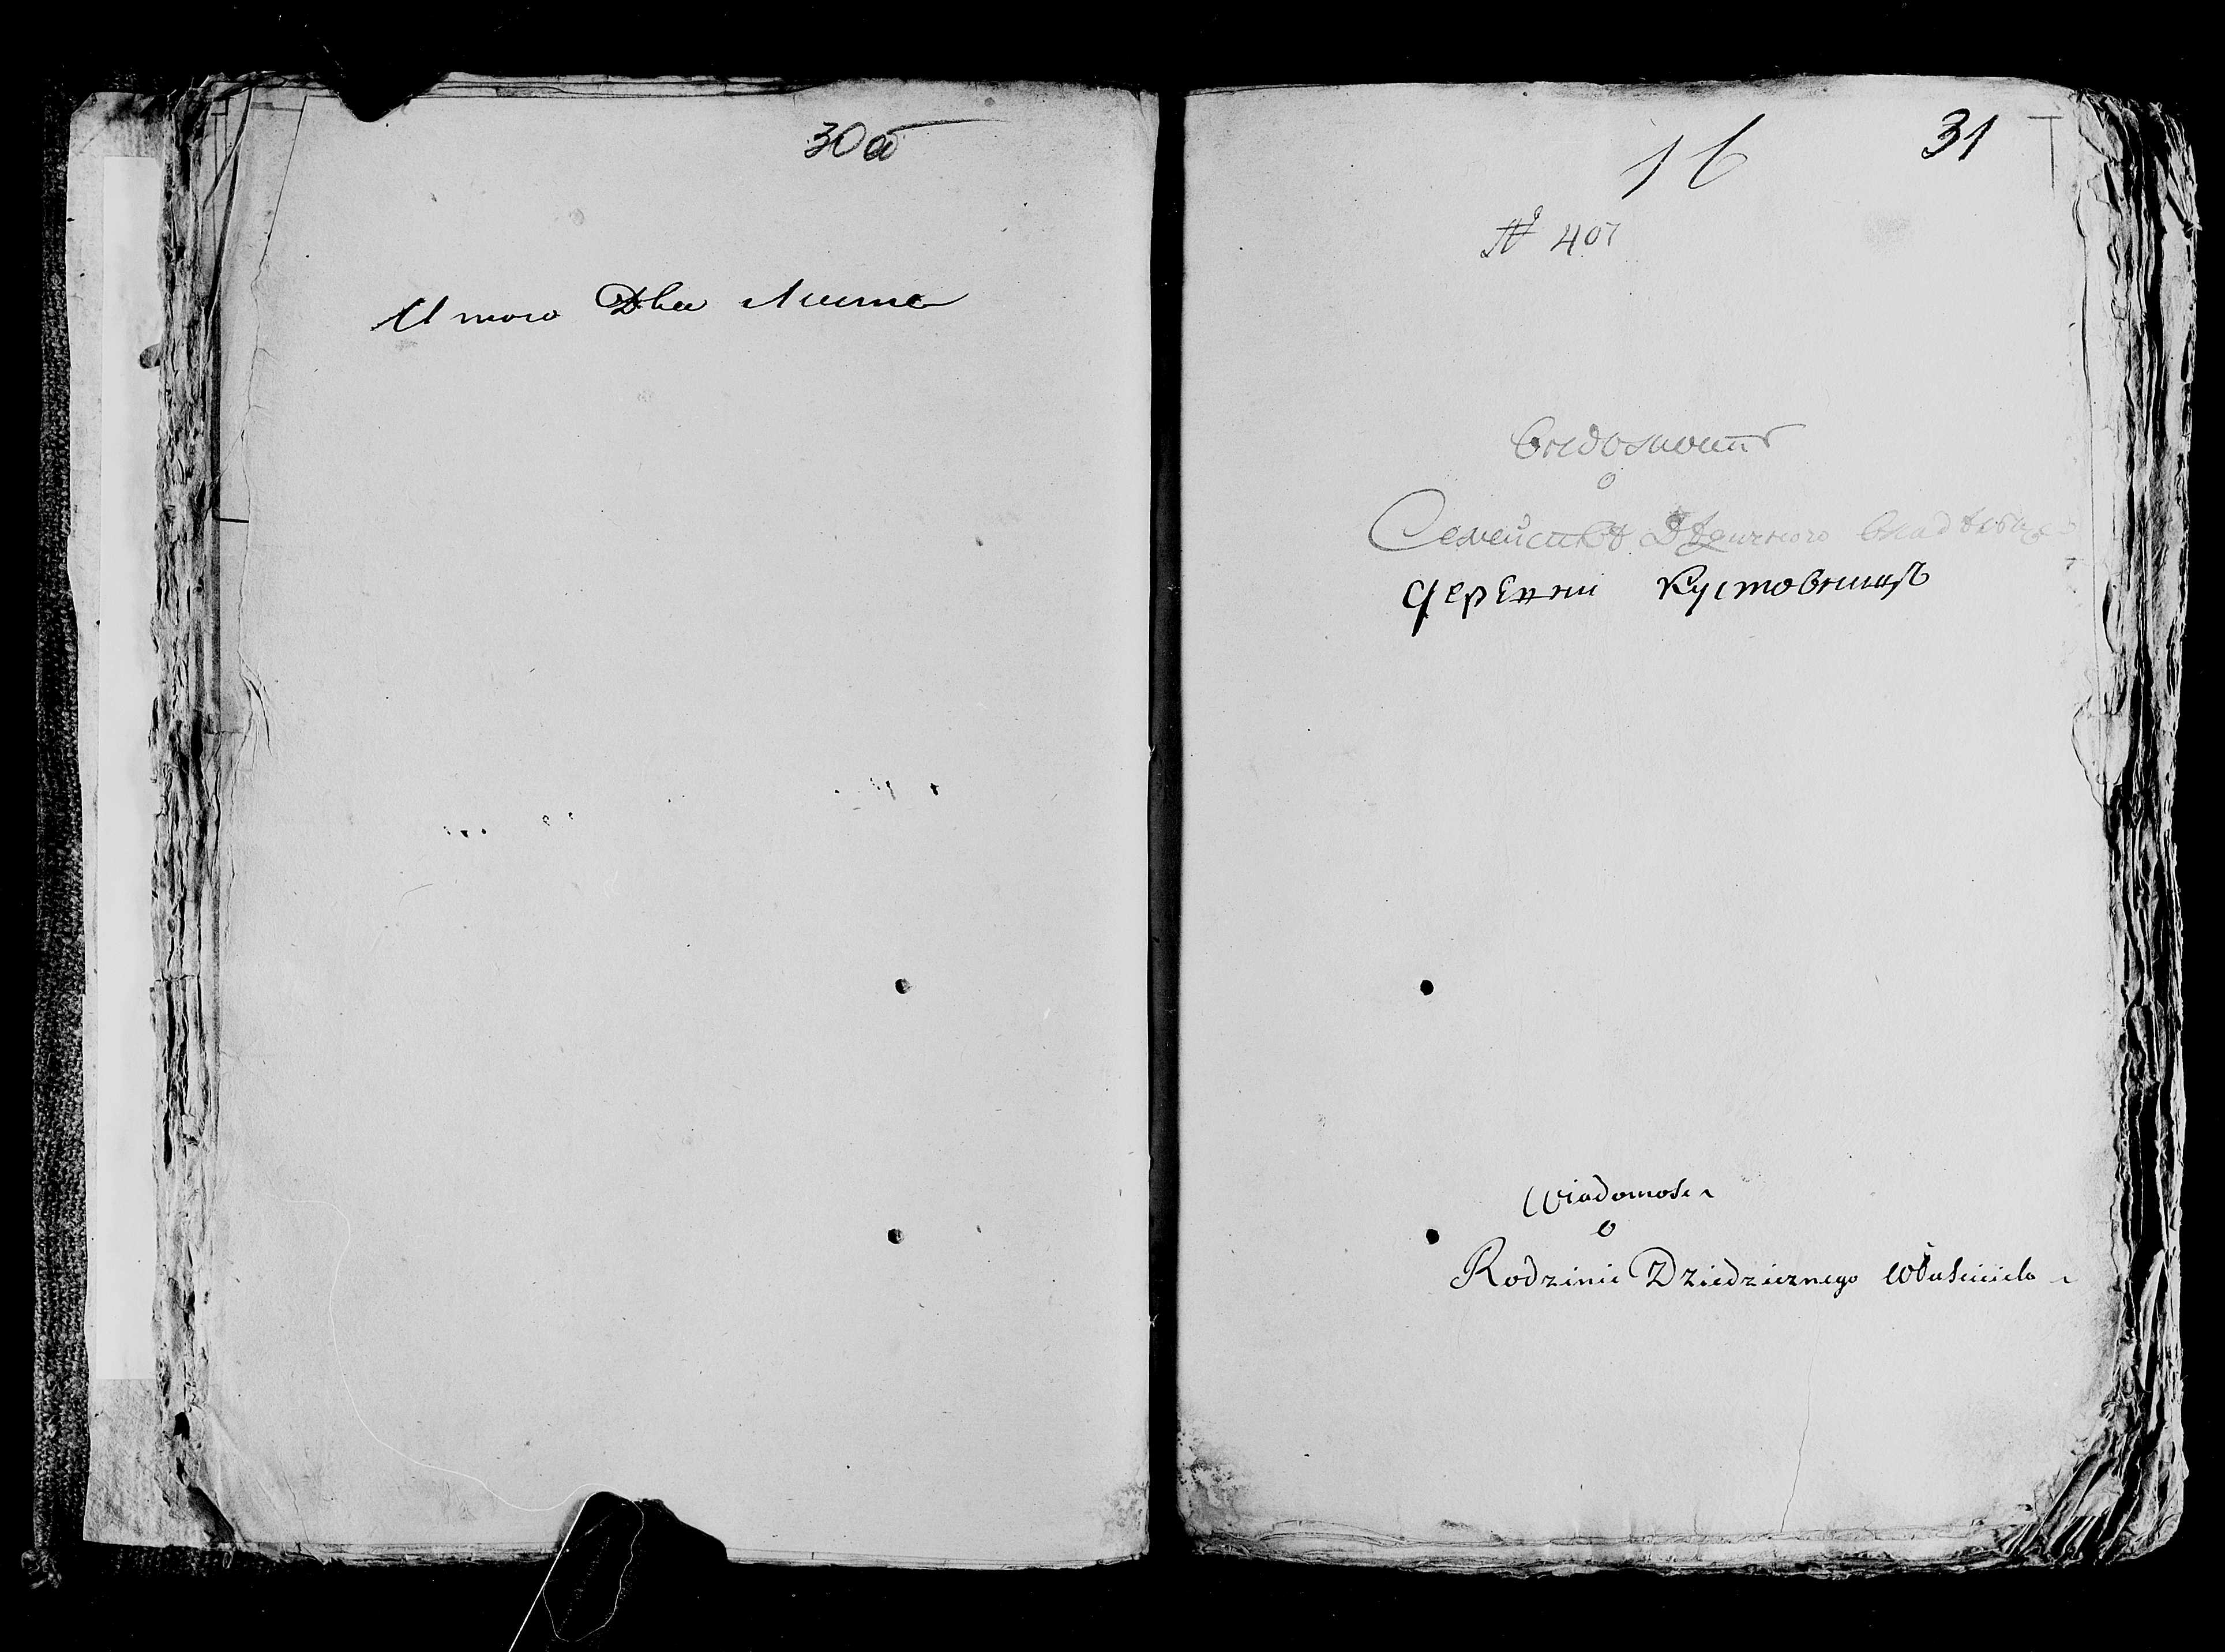 30 об
Итого Два Листа
31
16
№ 407
Ведомость
о
Семействе Дѣдичного Владѣльца
Деревни
Wiadomość
o
Rodzinie Dziedzicznego Właściciela